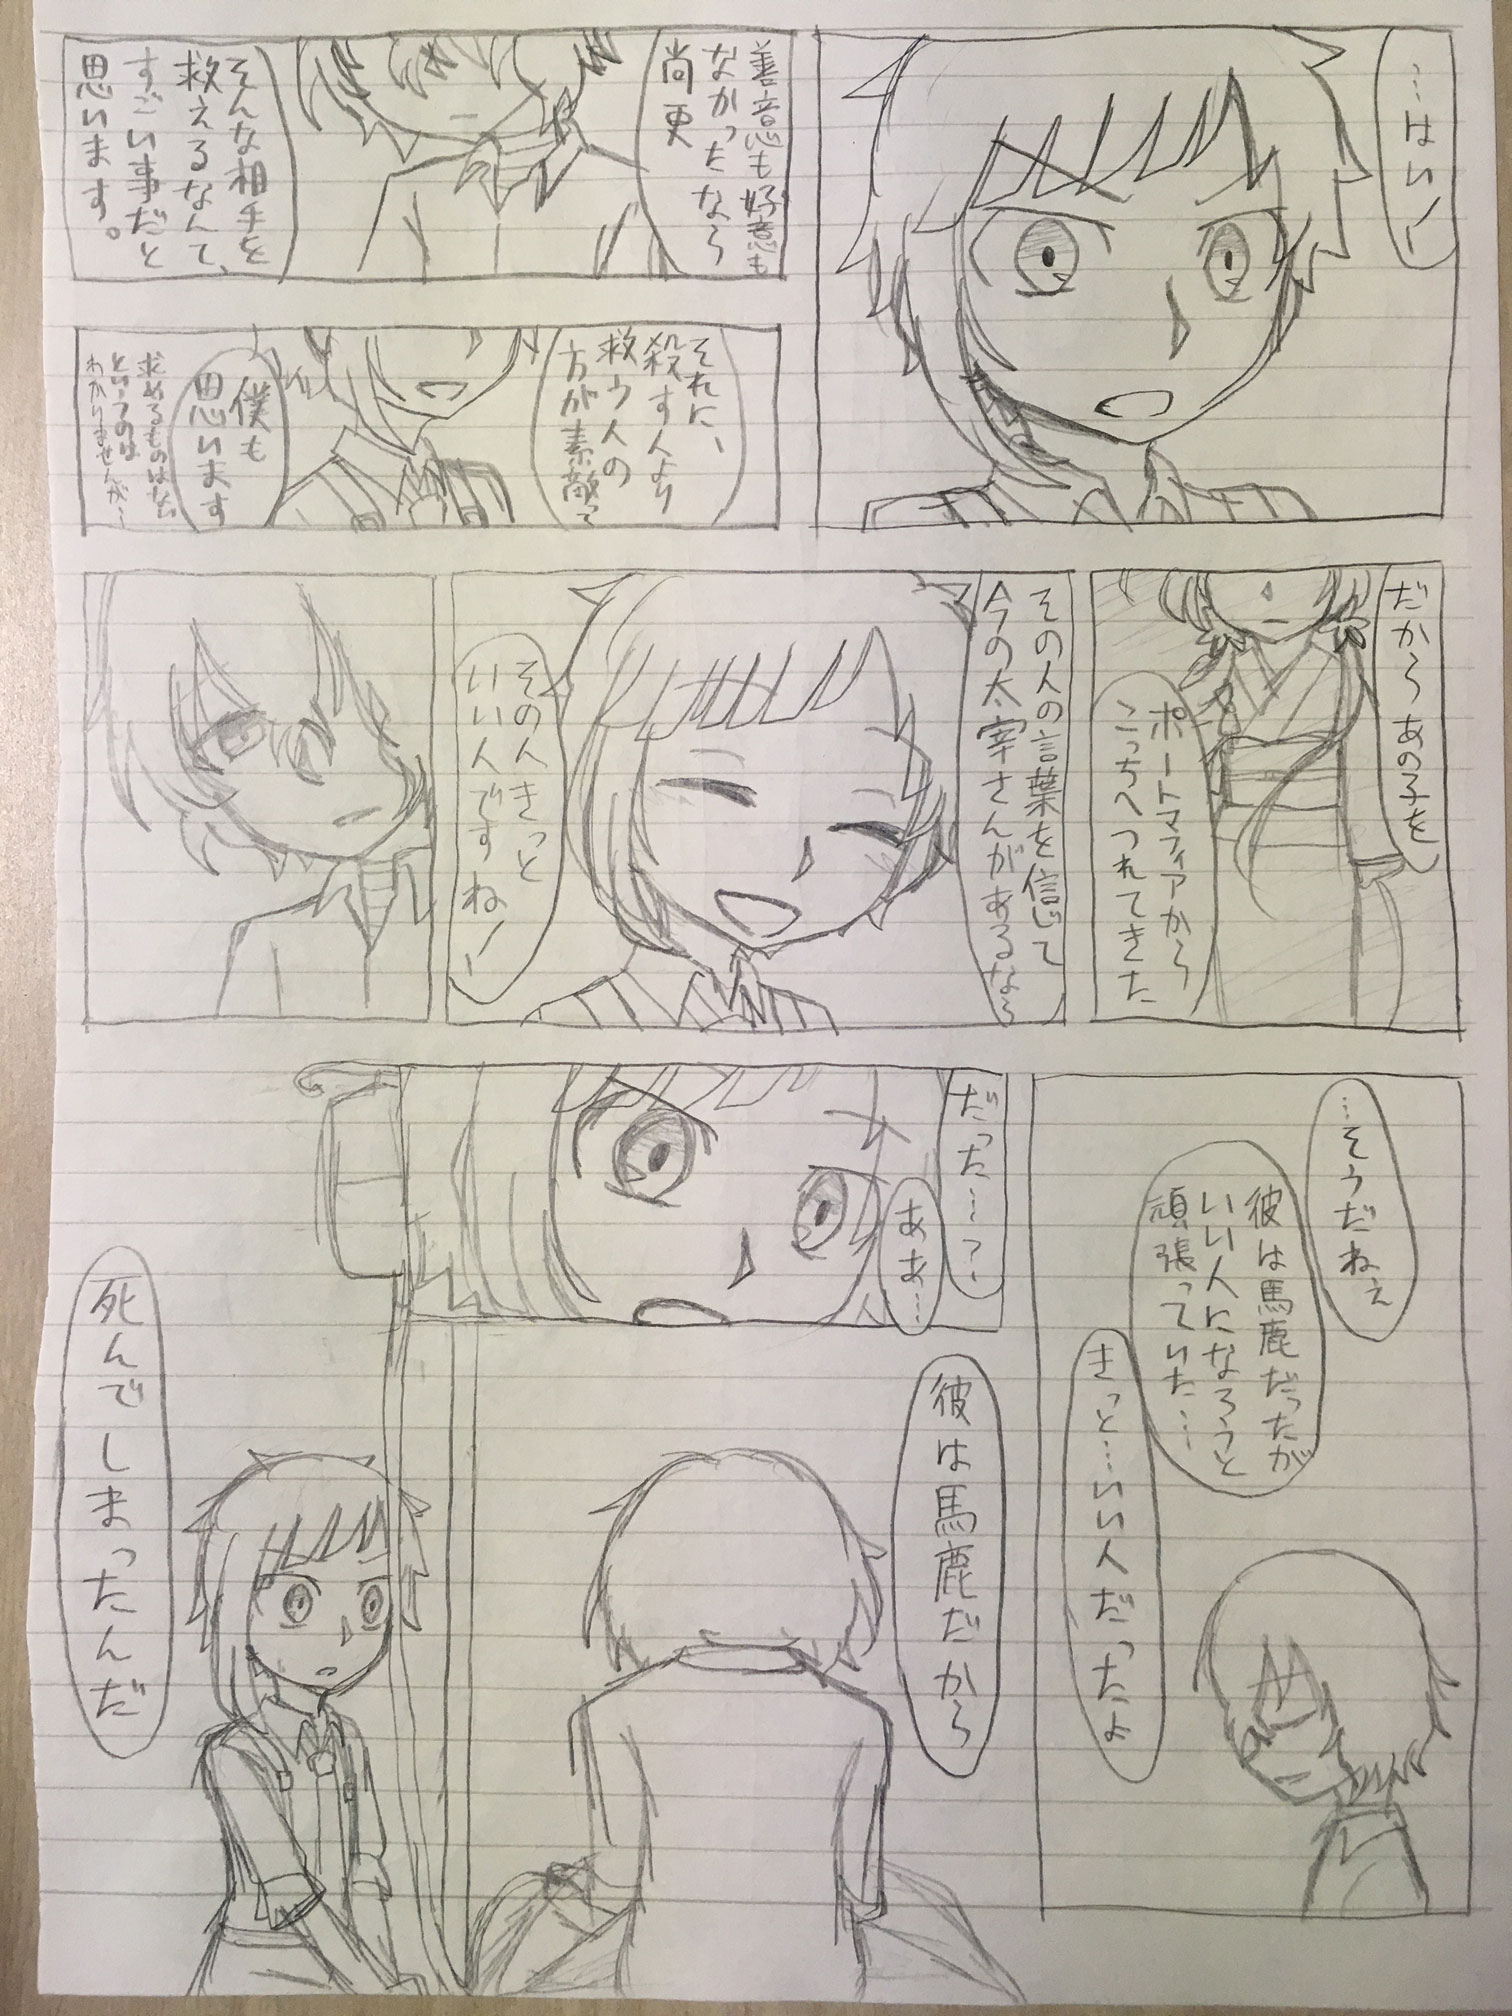 …はい！
善意も好意も
なかったなら
尚更
そんな相手を
救えるなんて、
すごい事だと
思います。
それに、
殺す人より
救う人の
方が素敵って
僕も
思います
求めるものはない
というのは
わかりませんが…
だからあの子を
ポートマフィアから
こっちへつれてきた
その人の言葉を信じて
今の太宰さんがあるなら
その人きっと
いい人ですね！
…そうだねぇ
彼は馬鹿だったが
いい人になろうと
頑張っていた…
きっと…いい人だったよ
だった…？
ああ…
彼は馬鹿だから
死んでしまったんだ